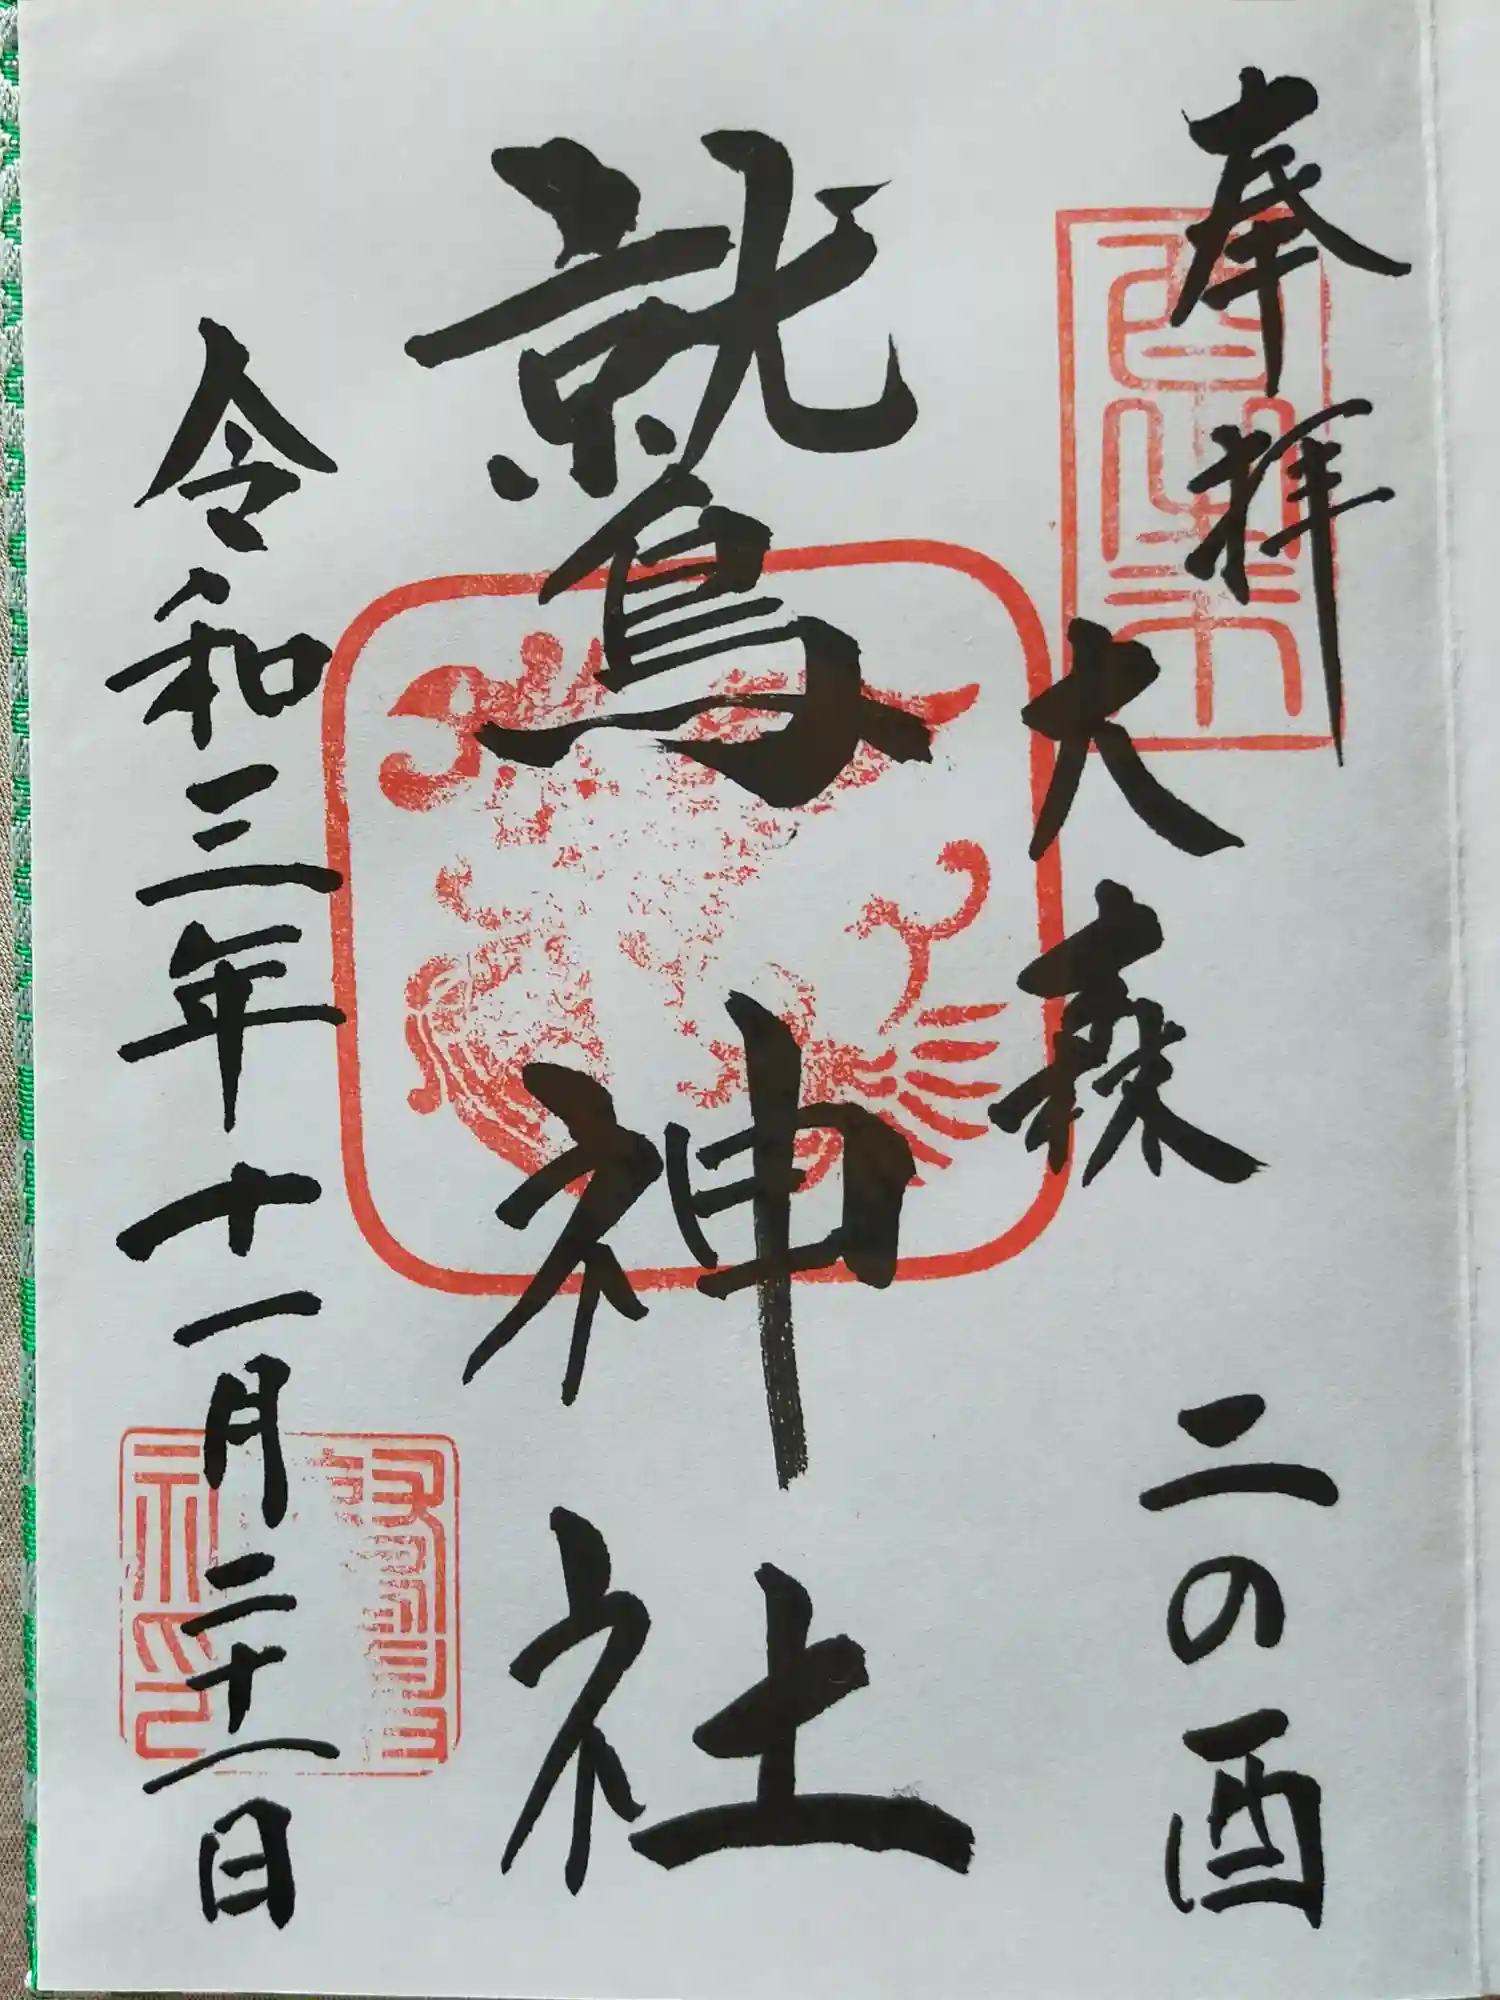 奉拝
大森
二の酉
鷲神社
令和三年十一月二十一日